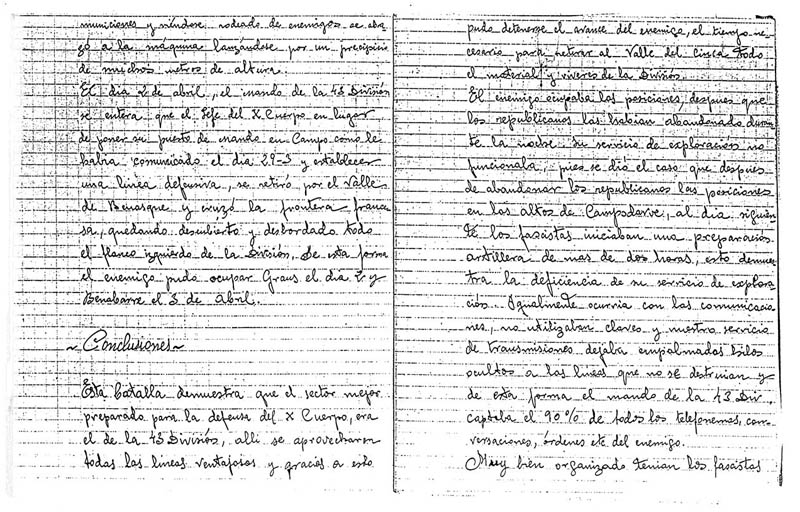 municiones y viendose rodeado de enemigos se aba
zó a la máquina lanzándose por un precipicio
de muchos metros de altura.
El dia 2 de abril, el mando de la 43 División
se entera que el Jefe del X Cuerpo en lugar
de poner su puesto de mando en Campo como le
habia comunicado el dia 29-3 y establecer
una linea defensiva, se retiró por el Valle
de Benasque y cruzó la frontera france
sa, quedando descubierto y desbordado todo
el flanco izquierdo de la División. De esta forma
el enemigo pudo ocupar Graus el dia y
Benabarre el 3 de Abril.
~ Conclusiones ~
Esta batalla demuestra que el sector mejor
preparado para la defensa del X Cuerpo, era
el de la 43 División, alli se aprovecharon
todas las lineas ventajosas y gracias a esto
pudo detenerse el avance del enemigo, el tiempo ne-
cesario para retirar al Valle del Cinca todo
el material y viveres de la División.
El enemigo ocupaba las posiciones, despues que
los republicanos las habian abandonado duran
te la noche. Su servicio de exploracion no
funcionaba, pues se dió el caso que despues
de abandonar los republicanos las posiciones
en los altos de Campodarve, al dia siguien
te los fascistas iniciaban una preparacion
artillera de mas de dos horas, esto demues
tra la deficiencia de su servicio de explora
ción. Igualmente ocurria con las comunicacio
nes, no utilizaban claves y nuestro servicio
de transmisiones dejaba empalmados hilos
ocultos a las lineas que no se destruian y
de esta forma el mando de la 43 Div.
captaba el 90% de todos los telefonemas, con-
versaciones, órdenes etc. del enemigo.
Muy bien organizado tenian los fascistas